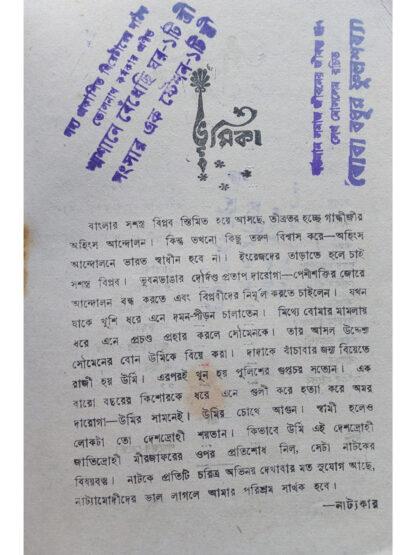 সদ্য প্রকাশিত থিয়েটারের নাটক
ভোলানাথ
শ্মশানে বেঁধেছি ঘর-১টি স্ত্রী
সংসার এক স্টেশন-১টি স্ত্রী
বোবা বধূর ফুলশয্যা
ভূমিকা
বাংলার সশস্ত্র বিপ্লব স্তিমিত হয়ে আসছে, তীব্রতর হচ্ছে গান্ধীজীর
অহিংস আন্দোলন। কিন্তু তখনো কিছু তরুণ বিশ্বাস করে—অহিংস
আন্দোলনে ভারত স্বাধীন হবে না। ইংরেজদের তাড়াতে হলে চাই
সশস্ত্র বিপ্লব। ভুবনডাঙার দোর্দণ্ড প্রতাপ দারোগা—পেশীশক্তির জোরে
আন্দোলন বন্ধ করতে এবং বিপ্লবীদের নির্মূল করতে চাইলেন। যখন
যাকে খুশি ধরে এনে দমন-পীড়ন চালাতেন। মিথ্যে বোমার মামলায়
ধরে এনে প্রচণ্ড প্রহার করলে সৌমেনকে। তার আসল উদ্দেশ্য
সৌমেনের বোন উর্মিকে বিয়ে করা। দাদাকে বাঁচাবার জন্য বিয়েতে
রাজী হয় উর্মি। এরপরই খুন হয় পুলিশের গুপ্তচর সত্যেন। এক
বারো বছরের কিশোরকে ধরে এনে গুলী করে হত্যা করে অমর
দারোগা—উর্মির সামনেই। উর্মির চোখে আগুন। স্বামী হলেও
লোকটা তো দেশদ্রোহী শয়তান। কিভাবে উর্মি এই দেশদ্রোহী
জাতিদ্রোহী মীরজাফরের ওপর প্রতিশোধ নিল, সেটা নাটকের
বিষয়বস্তু। নাটকে প্রতিটি চরিত্র অভিনয় দেখাবার মত সুযোগ আছে,
নাট্যামোদীদের ভাল লাগলে আমার পরিশ্রম সার্থক হবে।
—নাট্যকার